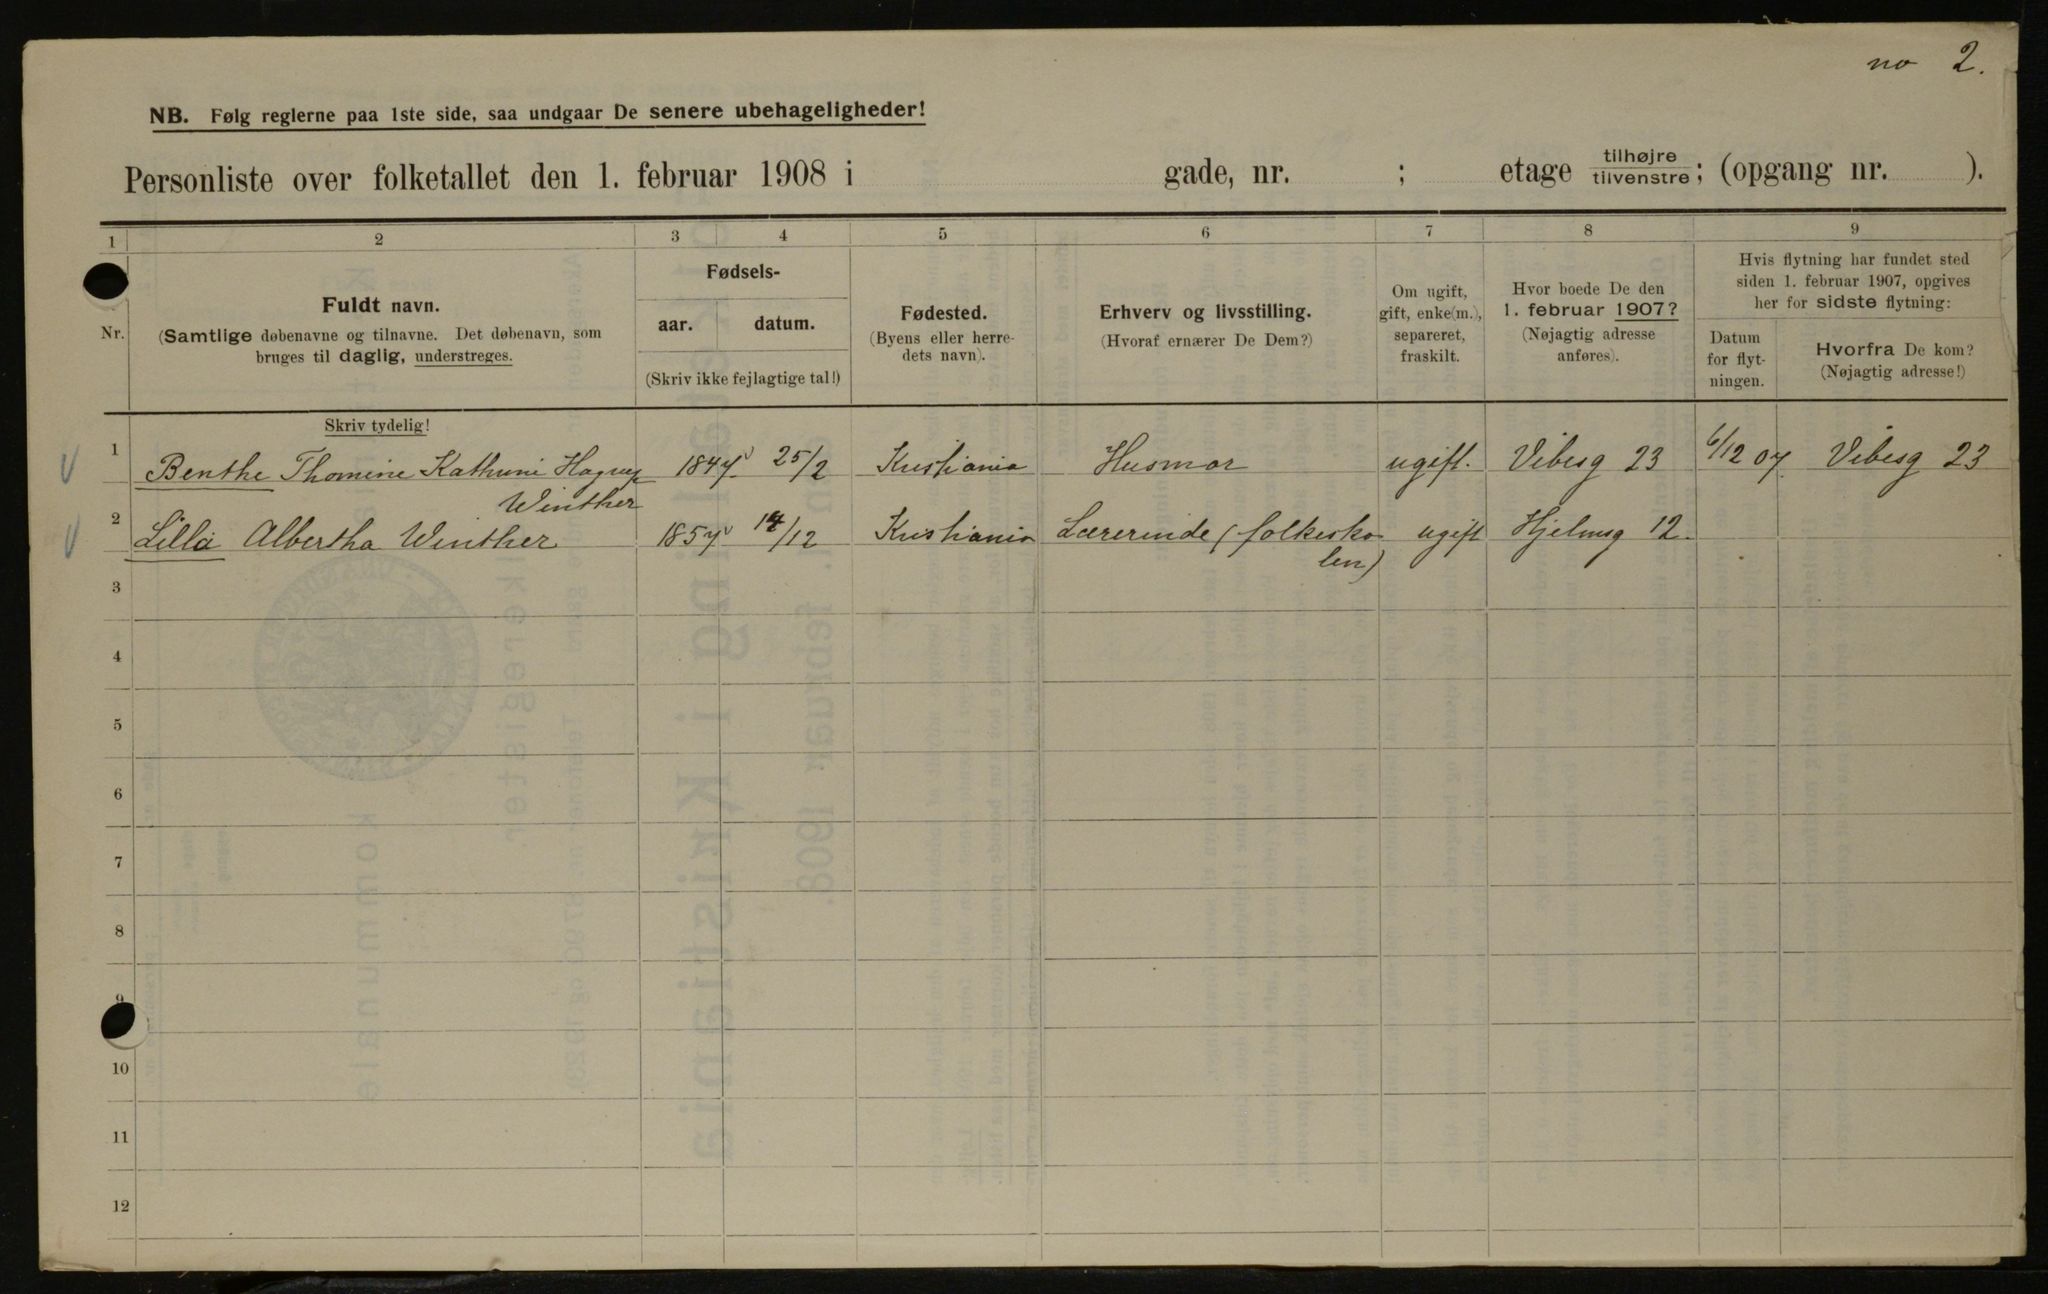 no 2.
NB. Følg reglerne paa 1ste side, saa undgaar De senere ubehageligheder!
Personliste over folketallet den 1. februar 1908 i gade, nr. ; etage tilhøjre tilvenstre; (opgang nr. ).
1 2 3 4 5 6 7 8 9
Nr.
Fuldt navn.
(Samtlige døbenavne og tilnavne. Det døbenavn, som
bruges til daglig, understreges.
Fødsels-
aar. datum.
(Skriv ikke fejlagtige tal!)
Fødested.
(Byens eller herre-
dets navn).
Erhverv og livsstilling.
(Hvoraf ernærer De Dem?)
Om ugift,
gift, enke(m.),
separeret,
fraskilt.
Hvor boede De den
1. februar 1907?
(Nøjagtig adresse
anføres).
Hvis flytning har fundet sted
siden 1. februar 1907, opgives
her for sidste flytning:
Datum
for flyt-
ningen.
Hvorfra De kom?
(Nøjagtig adresse!)
Skriv tydelig!
1 Benthe Thomine Kathrine 1847 25/2 Kristiania Husmor ugift. Vibesg 23 6/12 07. Vibesg 23
Winther
2 Lilla Albertha Winther 1857 /12 Kristiania Lærerinde (folkesko- ugift Hjelmsg 12.
len)
3
4
5
6
7
8
9
10
11
12